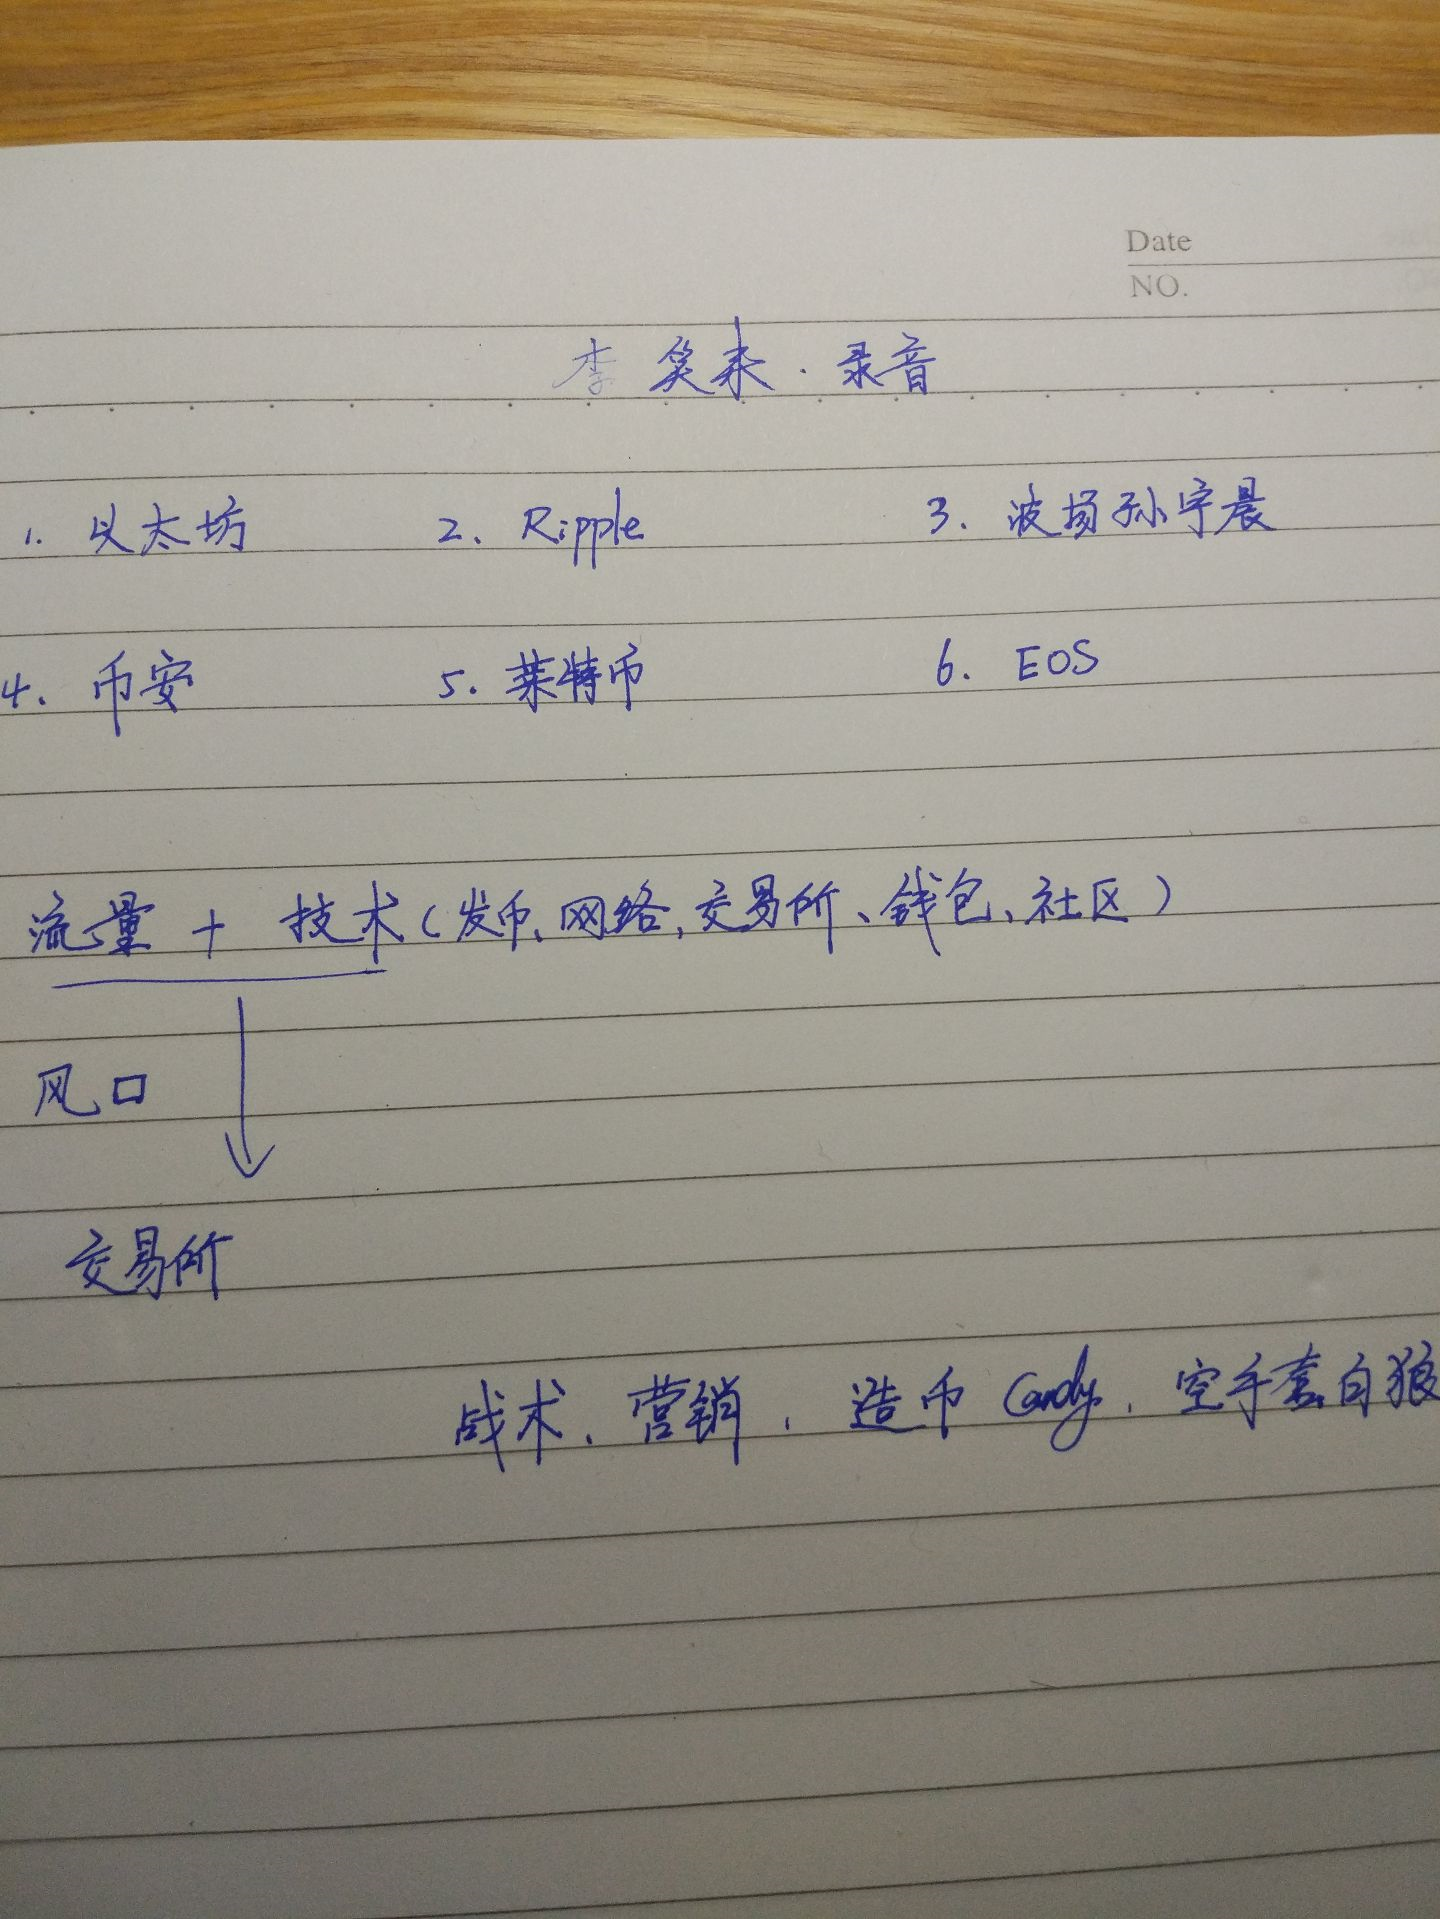 Date
NO.
李笑来·录音
1. 以太坊 2. Ripple 3. 波场孙宇晨
4. 币安 5. 莱特币 6. EOS
流量 + 技术(发币、网络、交易所、钱包、社区)
风口
交易所
战术、营销、造币 Candy、空手套白狼